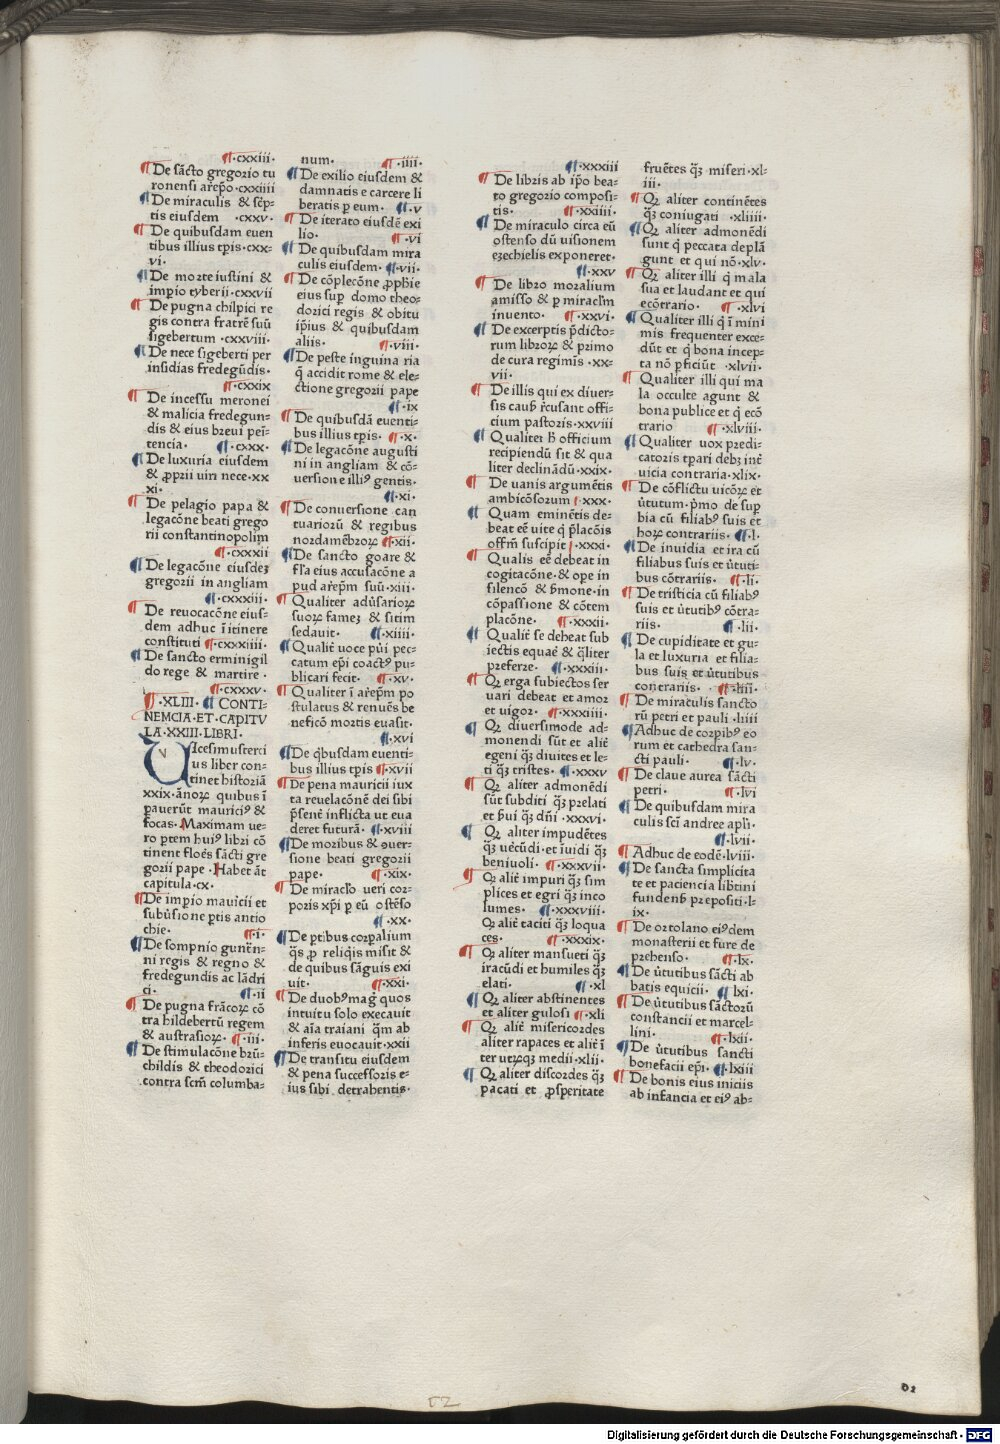 ·cxxiii·
De sãcto gregorio tu
ronensi arẽpo ·cxxiiii
De miraculis & sẽp-
tis eiusdem ·cxxv·
De quibusdam euen
tibus illius tp̃is·cxx-
vi·
De morte iustini &
imp̃io tyberii·cxxvii
De pugna chilpici re
gis contra fratrẽ suũ
sigebertum ·cxxviii·
De nece sigeberti per
insidias fredegũdis·
·cxxix
De incessu meronei
& malicia fredegun-
dis & eius breui pei̅-
tencia· ·cxxx·
De luxuria eiusdem
& ꝓprii uiri nece·xx
xi·
De pelagio papa &
legacõne beati grego
rii constantinopolim
·cxxxii
De legacõne eiusdeȝ
gregorii in angliam
·cxxxiii·
De reuocacõne eius-
dem adhuc ĩ itinere
constituti ·cxxxiiii·
De sancto erminigil
do rege & martire ·
·cxxxv·
·XLIII· CONTI-
NEMCIA·ET·CAPITV
LA·XXIII·LIBRI·
Vicesimusterci
us liber con-
tinet historiã
xxix·ãnoꝝ quibus ĩ
pauerũt mauriciꝰ &
focas· Maximam ue-
ro p̃tem huiꝰ libri cõ
tinent floẽs sãcti gre
gorii pape · Habet ãt
capitula·cx·
De imp̃io mauicii et
subũsione p̃tis antio
chie· ·i·
De sompnio gunẽn-
ni regis & regno &
fredegundis ac lãdri
ci· ·ii
De pugna frãcoꝝ cõ
tra hildebertũ regem
& austrasioꝝ· ·iii·
De stimulacõne brũ-
childis & theodorici
contra scm̃ columba-
num· ·iiii·
De exilio eiusdem &
damnatis e carcere li
beratis p eum· ·v
De iterato eiusdẽ exi
lio· ·vi
De quibusdam mira
culis eiusdem· ·vii·
De cõplecõne ꝓphie
eius sup domo theo-
dorici regis & obitu
ip̃ius & quibusdam
aliis· ·viii·
De peste inguina ria
q̃ accidit rome & ele-
ctione gregorii pape
·ix
De quibusdã euenti-
bus illius tp̃is· ·x·
De legacõne augusti
ni in angliam & cõ-
uersione illiꝰ gentis·
·xi·
De conuersione can
tuariorũ & regibus
nordamẽbroꝝ ·xii·
De sancto goare &
fl̃a eius accusacõne a
pud arẽpm̃ suũ·xiii·
Qualiter aduersarioꝝ
suoꝝ fameȝ & sitim
sedauit· ·xiiii·
Qualit̃ uoce pũi pec-
catum ep̃i coactꝰ pu-
blicari fecit· ·xv·
Qualiter ĩ arẽpm̃ po
stulatus & renuẽs be
neficõ mortis euasit·
·xvi
De qb̃usdam euenti-
bus illius tp̃is ·xvii
De pena mauricii iux
ta reuelacõnẽ dei sibi
p̃senẽ inflicta ut eua
deret futurã· ·xviii
De moribus & ꝯuer-
sione beati gregorii
pape· ·xix·
De miracl̃o ueri cor-
poris xp̃i p eũ ostẽso
·xx·
De p̃tibus corp̃alium
q̃s ꝓ reliqis misit &
de quibus sãguis exi
uit· ·xxi·
De duobꝰmag̃ quos
intuitu solo execauit
& aĩa traiani q̃m ab
inferis euocauit·xxii
De transitu eiusdem
& pena successoris e-
ius sibi detrahentis·
·xxxiii
De libris ab ip̃o bea-
to gregorio composi-
tis· ·xxiiii·
De miraculo circa eũ
ostenso dũ uisionem
eȝechielis exponeret·
·xxv
De libro moralium
amisso & p miraclm̃
inuento· ·xxvi·
De excerptis p̃dicto-
rum libroꝝ & primo
de cura regimis ·xx-
vii·
De illis qui ex diuer-
sis causꝭ r̃cusant offi-
cium pastoris·xxviii
Qualiter ħ officium
recipiendũ sit & qua
liter declinãdũ·xxix·
De uanis argumẽtis
ambicõsorum ·xxx·
Quam eminẽtis de-
beat eẽ uite q̃ p̃lacõis
offm̃ suscipit ·xxxi·
Qualis eẽ debeat in
cogitacõne·& ope in
silencõ & p̃mone·in
cõpassione & cõtem
placõne· ·xxxii·
Qualit̃ se debeat sub
iectis equaẽ & q̃liter
preferre· ·xxxiii·
Qꝝ erga subiectos ser
uari debeat et amor
et uigor· ·xxxiiii·
Qꝝ diuersimode ad-
monendi sũt et alit̃
egeni q̃ȝ diuites et le-
ti q̃ȝ tristes· ·xxxv
Qꝝ aliter admonẽdi
sũt subditi q̃ȝ prelati
et p̃ui q̃ȝ dñi ·xxxvi·
Qꝝ aliter impudẽtes
q̃ȝ uẽcũdi·et ĩuidi q̃ȝ
beniuoli· ·xxxvii·
Qꝝ alit̃ impuri q̃ȝ sim
plices et egri q̃ȝ inco
lumes· ·xxxviii·
Qꝝ alit̃ taciti q̃ȝ loqua
ces· ·xxxix·
Qꝝ aliter mansueti q̃ȝ
iracũdi et humiles q̃ȝ
elati· ·xl
Qꝝ aliter abstinentes
et aliter gulosi ·xli
Qꝝ alit̃ misericordes
aliter rapaces et alit̃ ĩ
ter utrꝝqȝ medii·xlii·
Qꝝ aliter discordes q̃ȝ
pacati et ꝓsperitate
fruẽtes q̃ȝ miseri·xl-
iii·
Qꝝ aliter continẽtes
q̃ȝ coniugati ·xliiii·
Qꝝ aliter admonẽdi
sunt q̃ peccata deplã
gunt et qui nõ·xlv·
Qꝝ aliter illi q̃ mala
sua et laudant et qui
ecõtrario· ·xlvi
Qualiter illi q̃ ĩ mini
mis frequenter exce-
dũt et q̃ bona incep-
ta nõ p̃ficiũt ·xlvii·
Qualiter illi qui ma
la occulte agunt &
bona publice et q̃ ecõ
trario ·xlviii·
Qualiter uox predi-
catoris tp̃ari debȝ int̃
uicia contraria·xlix·
De cõflictu uicõꝝ et
ũtutum·p̃mo de sup
bia cũ filiabꝰ suis et
horꝝ contrariis· ·l·
De inuidia et ira cũ
filiabus suis et ũtuti-
bus cõtrariis· ·li·
De tristicia cũ filiabꝰ
suis et ũtutibꝰ cõtra-
riis· ·lii·
De cupiditate et gu-
la et luxuria et filia-
bus suis et ũtutibus
contrariis· ·liii·
De miraculis sancto
rũ petri et pauli·liiii
Adhuc de corpibꝰ eo
rum et cathedra san-
cti pauli· ·lv·
De claue aurea sãcti
petri· ·lvi
De quibusdam mira
culis scĩ andree apl̃i·
·lvii·
Adhuc de eodẽ·lviii·
De sancta simplicita
te et paciencia libtini
fundenẽ prepositi·l-
ix·
De ortolano eiꝰdem
monasterii et fure de
prehenso· ·lx·
De ũtutibus sãcti ab
batis equicii· ·lxi·
De ũtutibus sãctorũ
constancii et marcel-
lini· ·lxii·
De ũtutibus sancti
bonefacii ep̃i· ·lxiii
De bonis eius iniciis
ab infancia et eiꝰ ab-
52
Digitalisierung gefördert durch die Deutsche Forschungsgemeinschaft · DFG